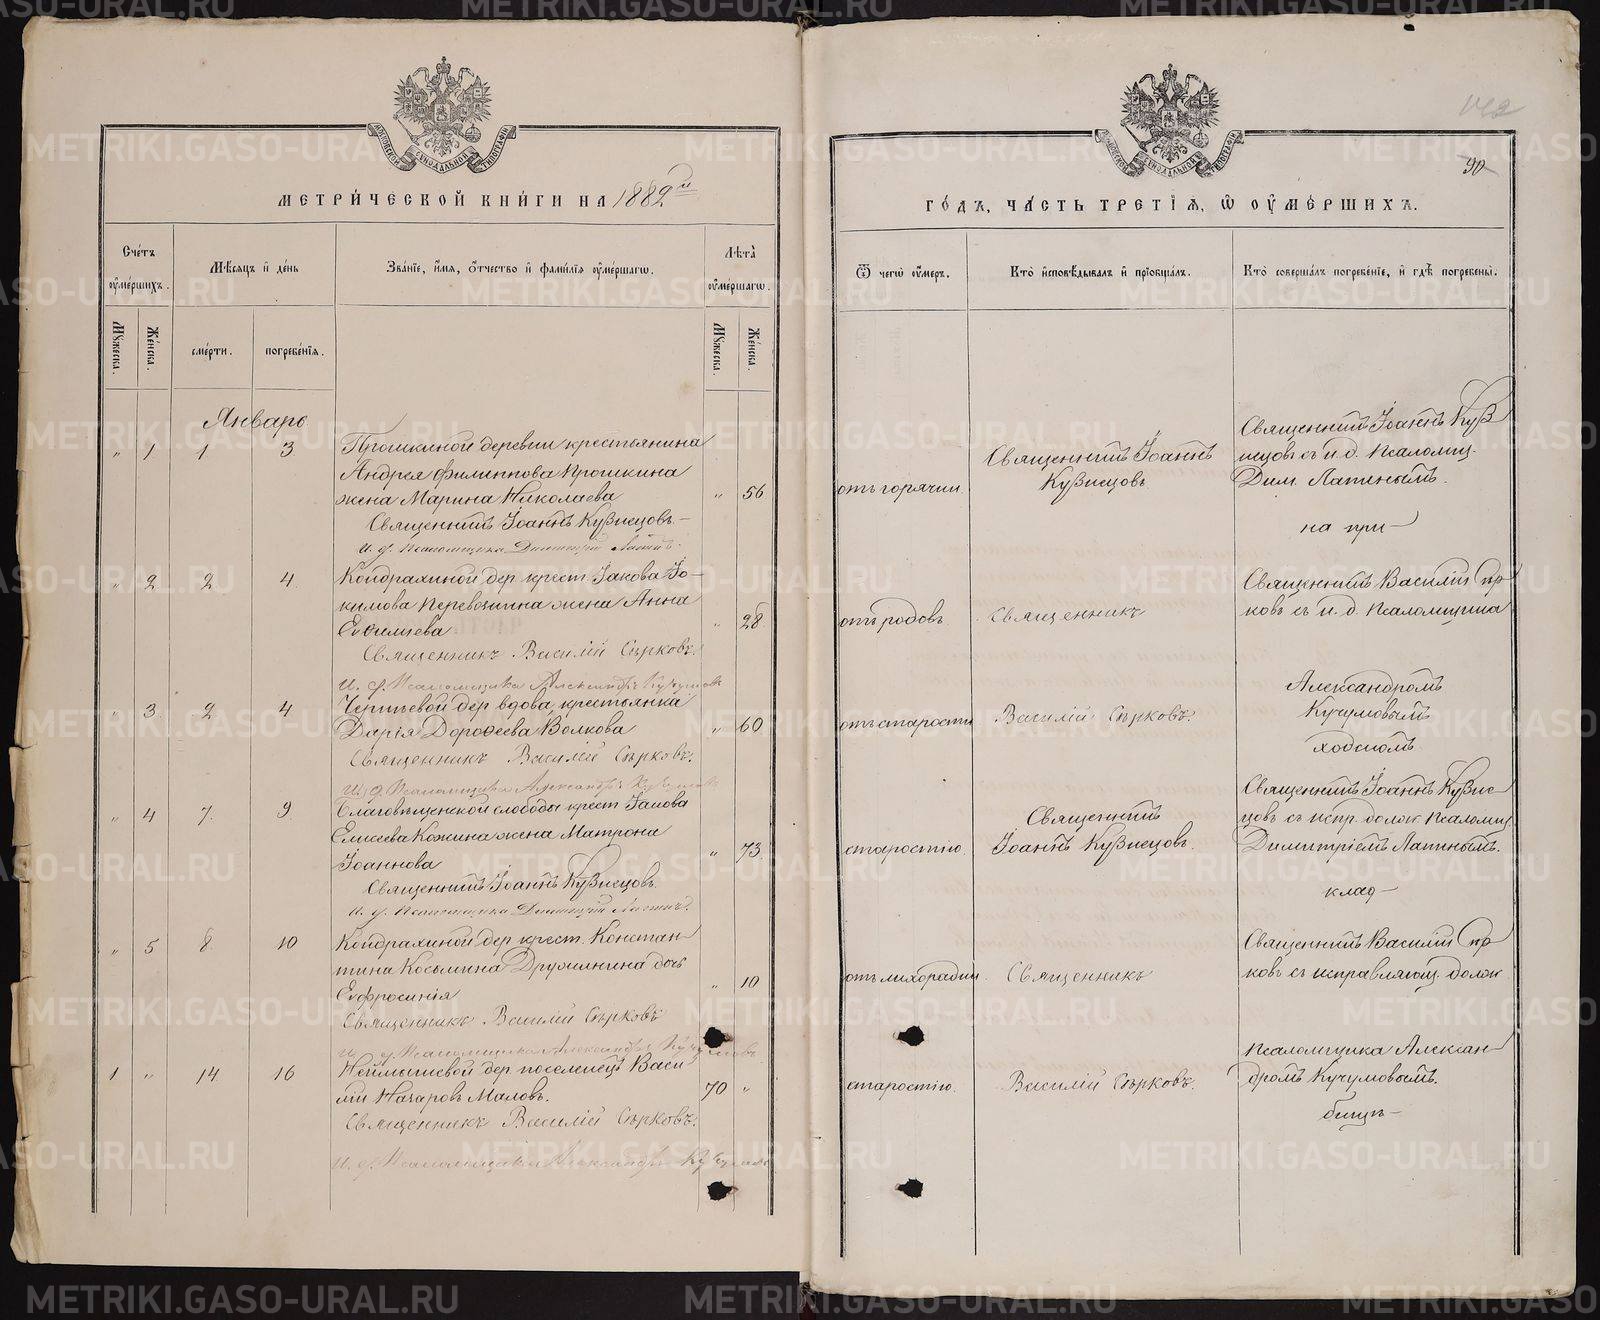 МЕТРИ́ЧЕСКОЙ КНИ́ГИ НА 1882й
Сче́тъ ᲂу҆ме́ршихъ.
Мѣ́сяцъ и҆ де́нь
Зва́нїе, и҆́мя, ѻ҆́тчество и҆ фами́лїя ᲂу҆ме́ршагѡ.
Лѣ́та ᲂу҆ме́ршагѡ.
Мꙋ́жеска.
Же́нска.
сме́рти.
погребе́нїя.
Мꙋ́жеска.
Же́нска.
Январь
„ 1 1 3
Прошкиной деревни крестьянина
Андрея Филиппова Прошкина
жена Марина Николаева „ 56
Священникъ Іоаннъ Кузнецовъ
И. д. Псаломщика Димитрій Лапинъ.
„ 2 2 4.
Кондрахиной дер крест. Іакова Іо-
кимова Перевозчина жена Анна
Евфимиева „ 28
Священникъ Василій Сѣрковъ.
И. д. Псаломщика Александръ Кучумовъ
„ 3 2 4
дер вдова крестьянка
Дарія Дороѳеева Волкова „ 60
Священникъ Василій Сѣрковъ.
И. д. Псаломщика Александръ Кучумовъ
„ 4 7. 9.
Благовѣщенской слободы крест Іакова
Елисеева Кожина жена Матрона
Іоаннова „ 73.
Священникъ Іоаннъ Кузнецовъ.
И. д. Псаломщика Димитрій Лапинъ.
„ 5 8. 10
Кондрахиной дер крест. Констан-
тина Косьмина Дружинина дочь
Евфросинія „ 10
Священникъ Василій Сѣрковъ
И. д. Псаломщика Александръ Кучумовъ
1 „ 14. 16
дер поселенецъ Васи-
лій Назаровъ Маловъ. 70 „
Священникъ Василій Сѣрковъ.
И. д. Псаломщика Александръ Кучумовъ
90
ГО́ДЪ, ЧА́СТЬ ТРЕ́ТІѦ, Ѡ҆ ОУ҆МЕ́РШИХЪ.
Ѿ чегѡ̀ ᲂу҆́меръ.
Кто̀ и҆сповѣ́дывалъ и҆ прїѡбща́лъ.
Кто̀ соверша́лъ погребе́нїе, и҆ гдѣ̀ погребены̀.
отъ горячки.
Священникъ Іоаннъ
Кузнецовъ
Священникъ Іоаннъ Куз
нецовъ съ и. д. Псаломщ.
Дим. Лапинымъ.
на при-
отъ родовъ
Священникъ
Священникъ Василій Сѣр
ковъ съ и. д. Псаломщика
отъ старости
Василій Сѣрковъ.
Александромъ
Кучумовымъ
ходскомъ
старостію.
Священникъ
Іоаннъ Кузнецовъ.
Священникъ Іоаннъ Кузне
цовъ съ испр. долж. Псаломщ
Димитріемъ Лапинымъ.
клад-
отъ лихорадки.
Священникъ
Священникъ Василій Сѣр
ковъ съ исправляющ. долж
старостію.
Василій Сѣрковъ.
Псаломщика Алексан-
дромъ Кучумовымъ.
бищѣ-
METRIKI.GASO-URAL.RU